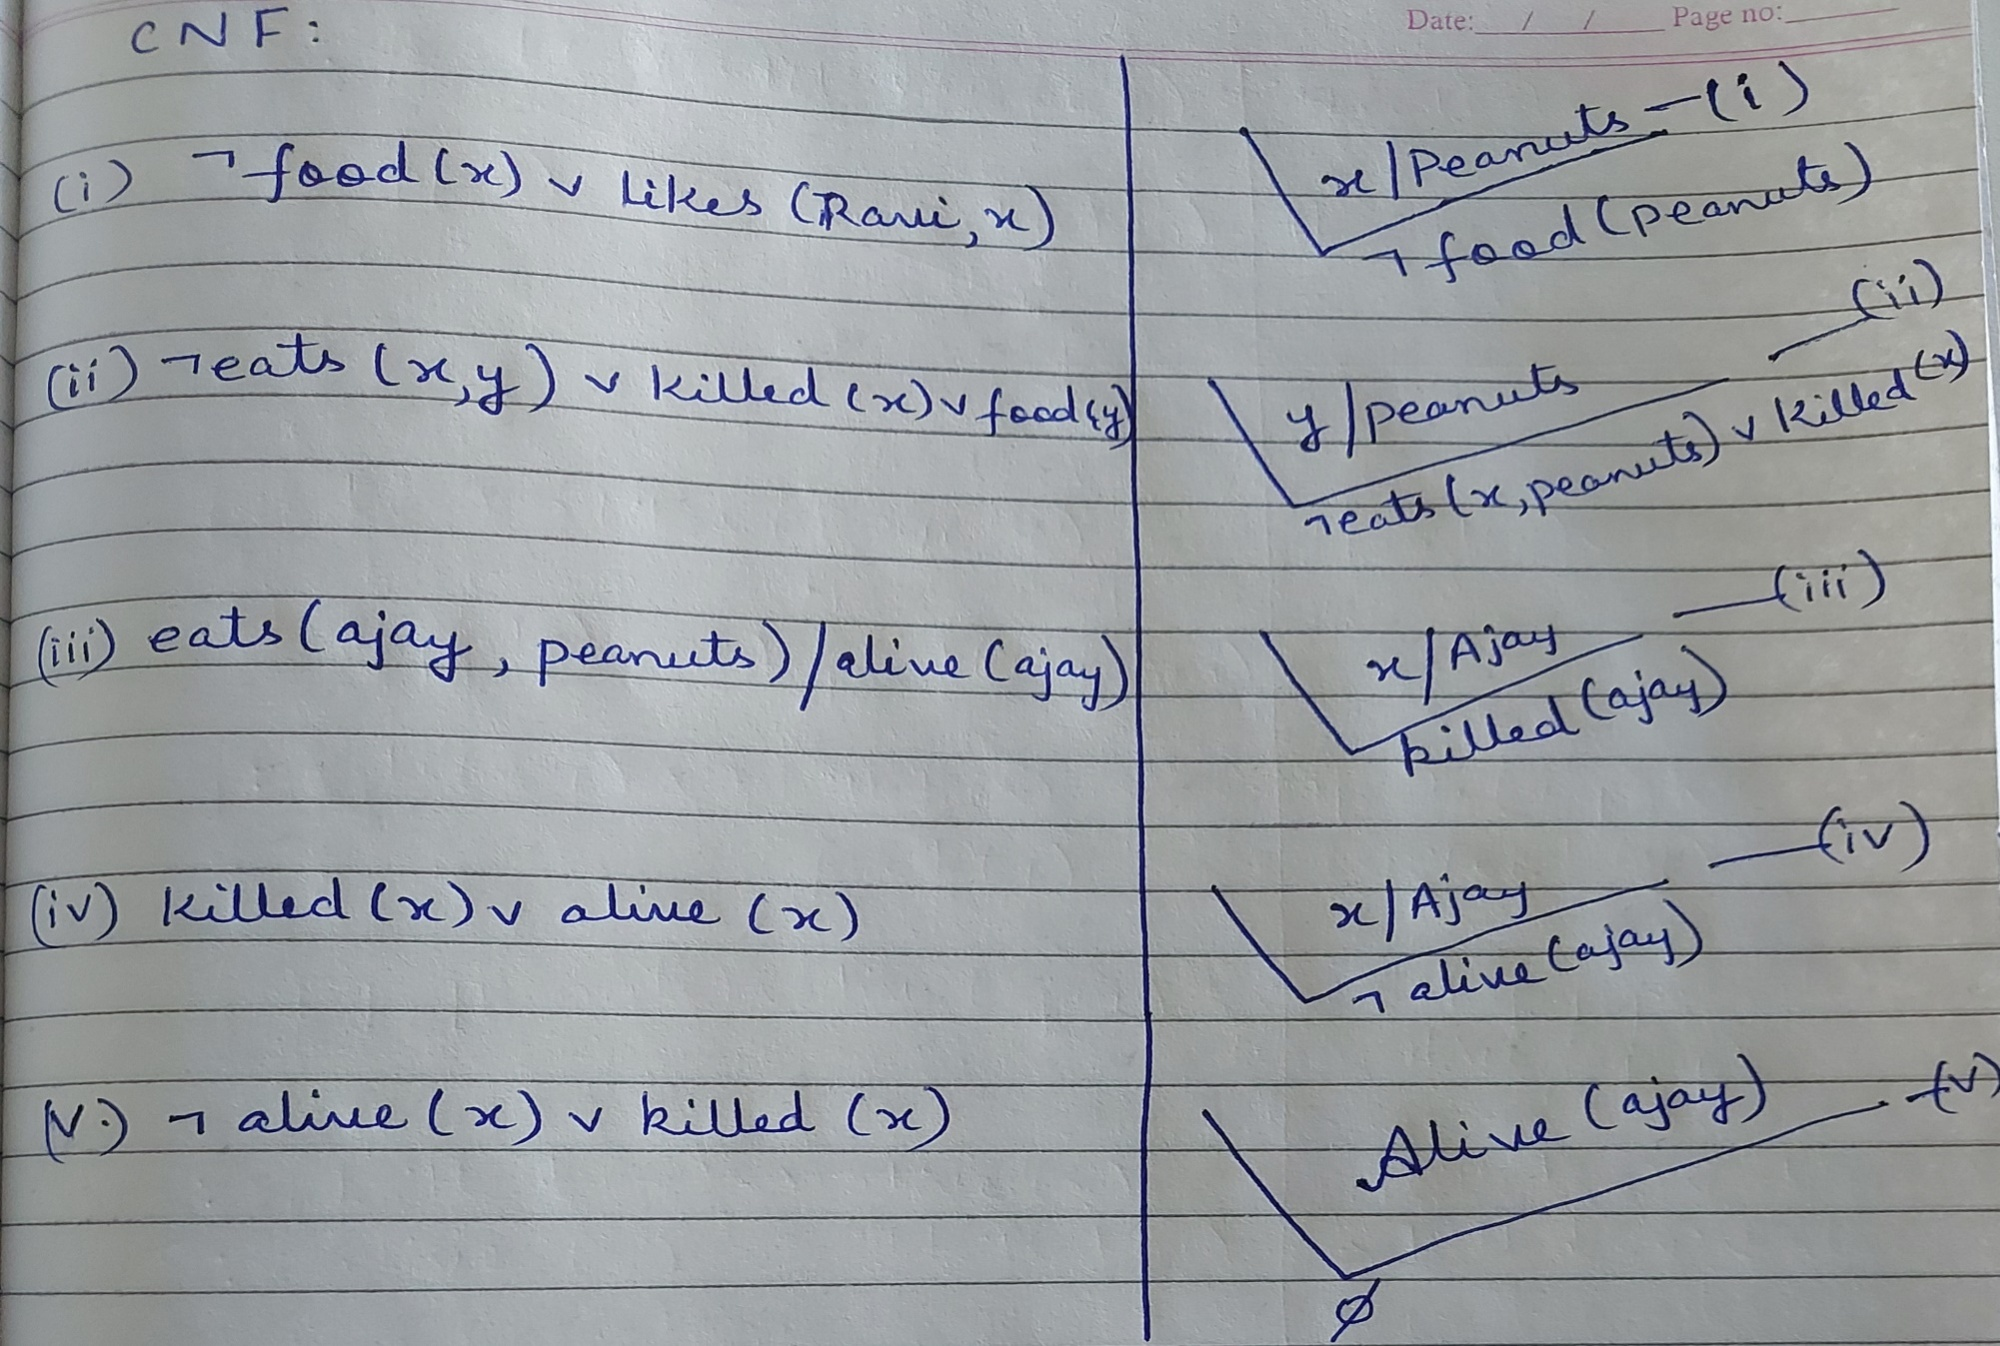 Date: / / Page no:
CNF:
(i) ¬food(x) ∨ Likes (Ravi, x)
(ii) ¬eats (x,y) ∨ killed (x) ∨ food(y)
(iii) eats (ajay, peanuts) / alive (ajay)
(iv) killed (x) ∨ alive (x)
(v.) ¬ alive (x) ∨ killed (x)
x/Peanuts —(i)
¬ food (peanuts)
y/peanuts —(ii)
¬eats (x, peanuts) ∨ killed (x)
x/Ajay —(iii)
killed (ajay)
x/Ajay —(iv)
¬ alive (ajay)
Alive (ajay) —(v)
∅